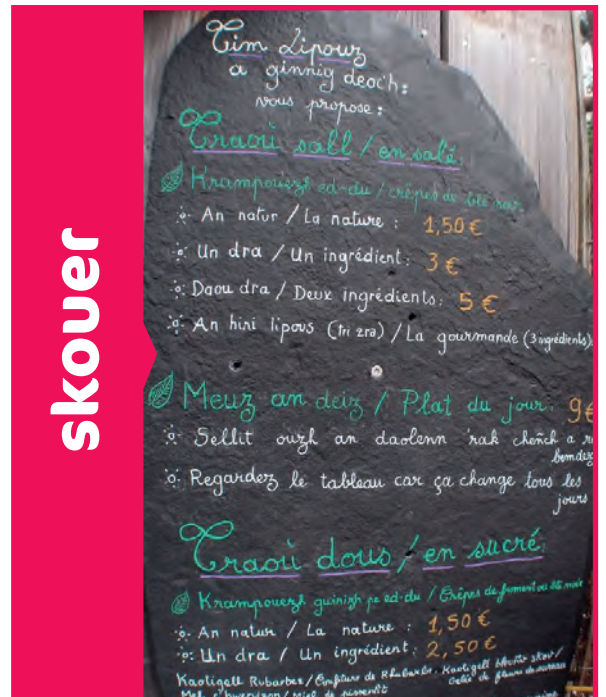 skouer
Tim Lipouz
a ginnig deoc'h:
vous propose :
Traoù sall / en salé:
Krampouezh ed-du / crêpes de blé noir
An natur / La nature : 1,50 €
Un dra / Un ingrédient: 3 €
Daou dra / Deux ingrédients: 5 €
An hini lipous (tri zra) / La gourmande (3 ingrédients)
Meuz an deiz / Plat du jour: 9€
Sellit ouzh an daolenn 'rak cheñch a
bemdez
Regardez le tableau car ça change tous les
jours
Traoù dous / en sucré:
Krampouezh gwinizh pe ed-du / Crêpes de froment ou blé noir
An natur / La nature : 1,50 €
Un dra / Un ingrédient: 2,50 €
Kaotigell Rubarbez / Confiture de Rhubarbe. Kaotigell skav /
Gelée de fleurs de sureau
Mel / Miel de pissenlit